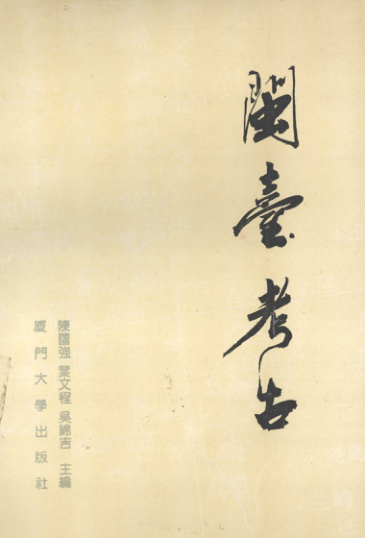 閩臺考古
陳國強 葉文程 吳綿吉 主編
廈門大學出版社